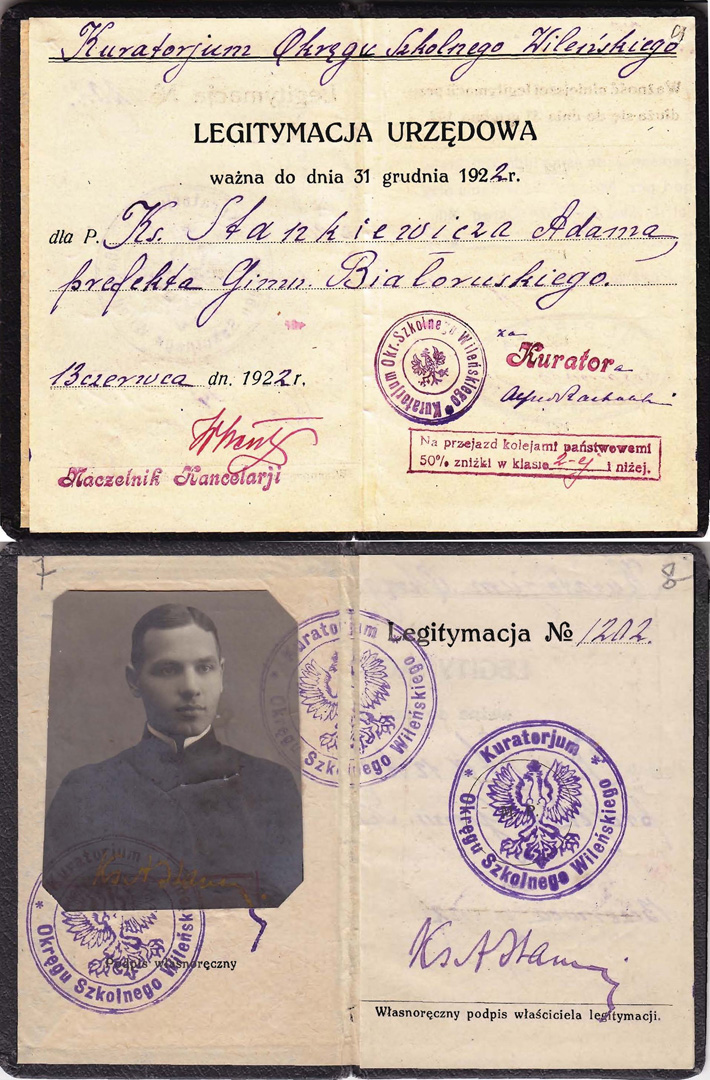 Kuratorjum Okręgu Szkolnego Wileńskiego
LEGITYMACJA URZĘDOWA
ważna do dnia 31 grudnia 1922 r.
dla P. Ks. Stankiewicza Adama,
prefekta Gimn. Białoruskiego.
13 czerwca dn. 1922 r.
Kuratorium Okr. Szkolnego Wileńskiego
za
Kuratora
Naczelnik Kancelarji
Na przejazd kolejami państwowemi
50% zniżki w klasie 2-ej i niżej.
7
8
Legitymacja № 1202.
Kuratorjum Okręgu Szkolnego Wileńskiego
Kuratorjum Okręgu Szkolnego Wileńskiego
Kuratorjum Okręgu Szkolnego Wileńsk
Podpis własnoręczny
Ks A Stan
Własnoręczny podpis właściciela legitymacji.